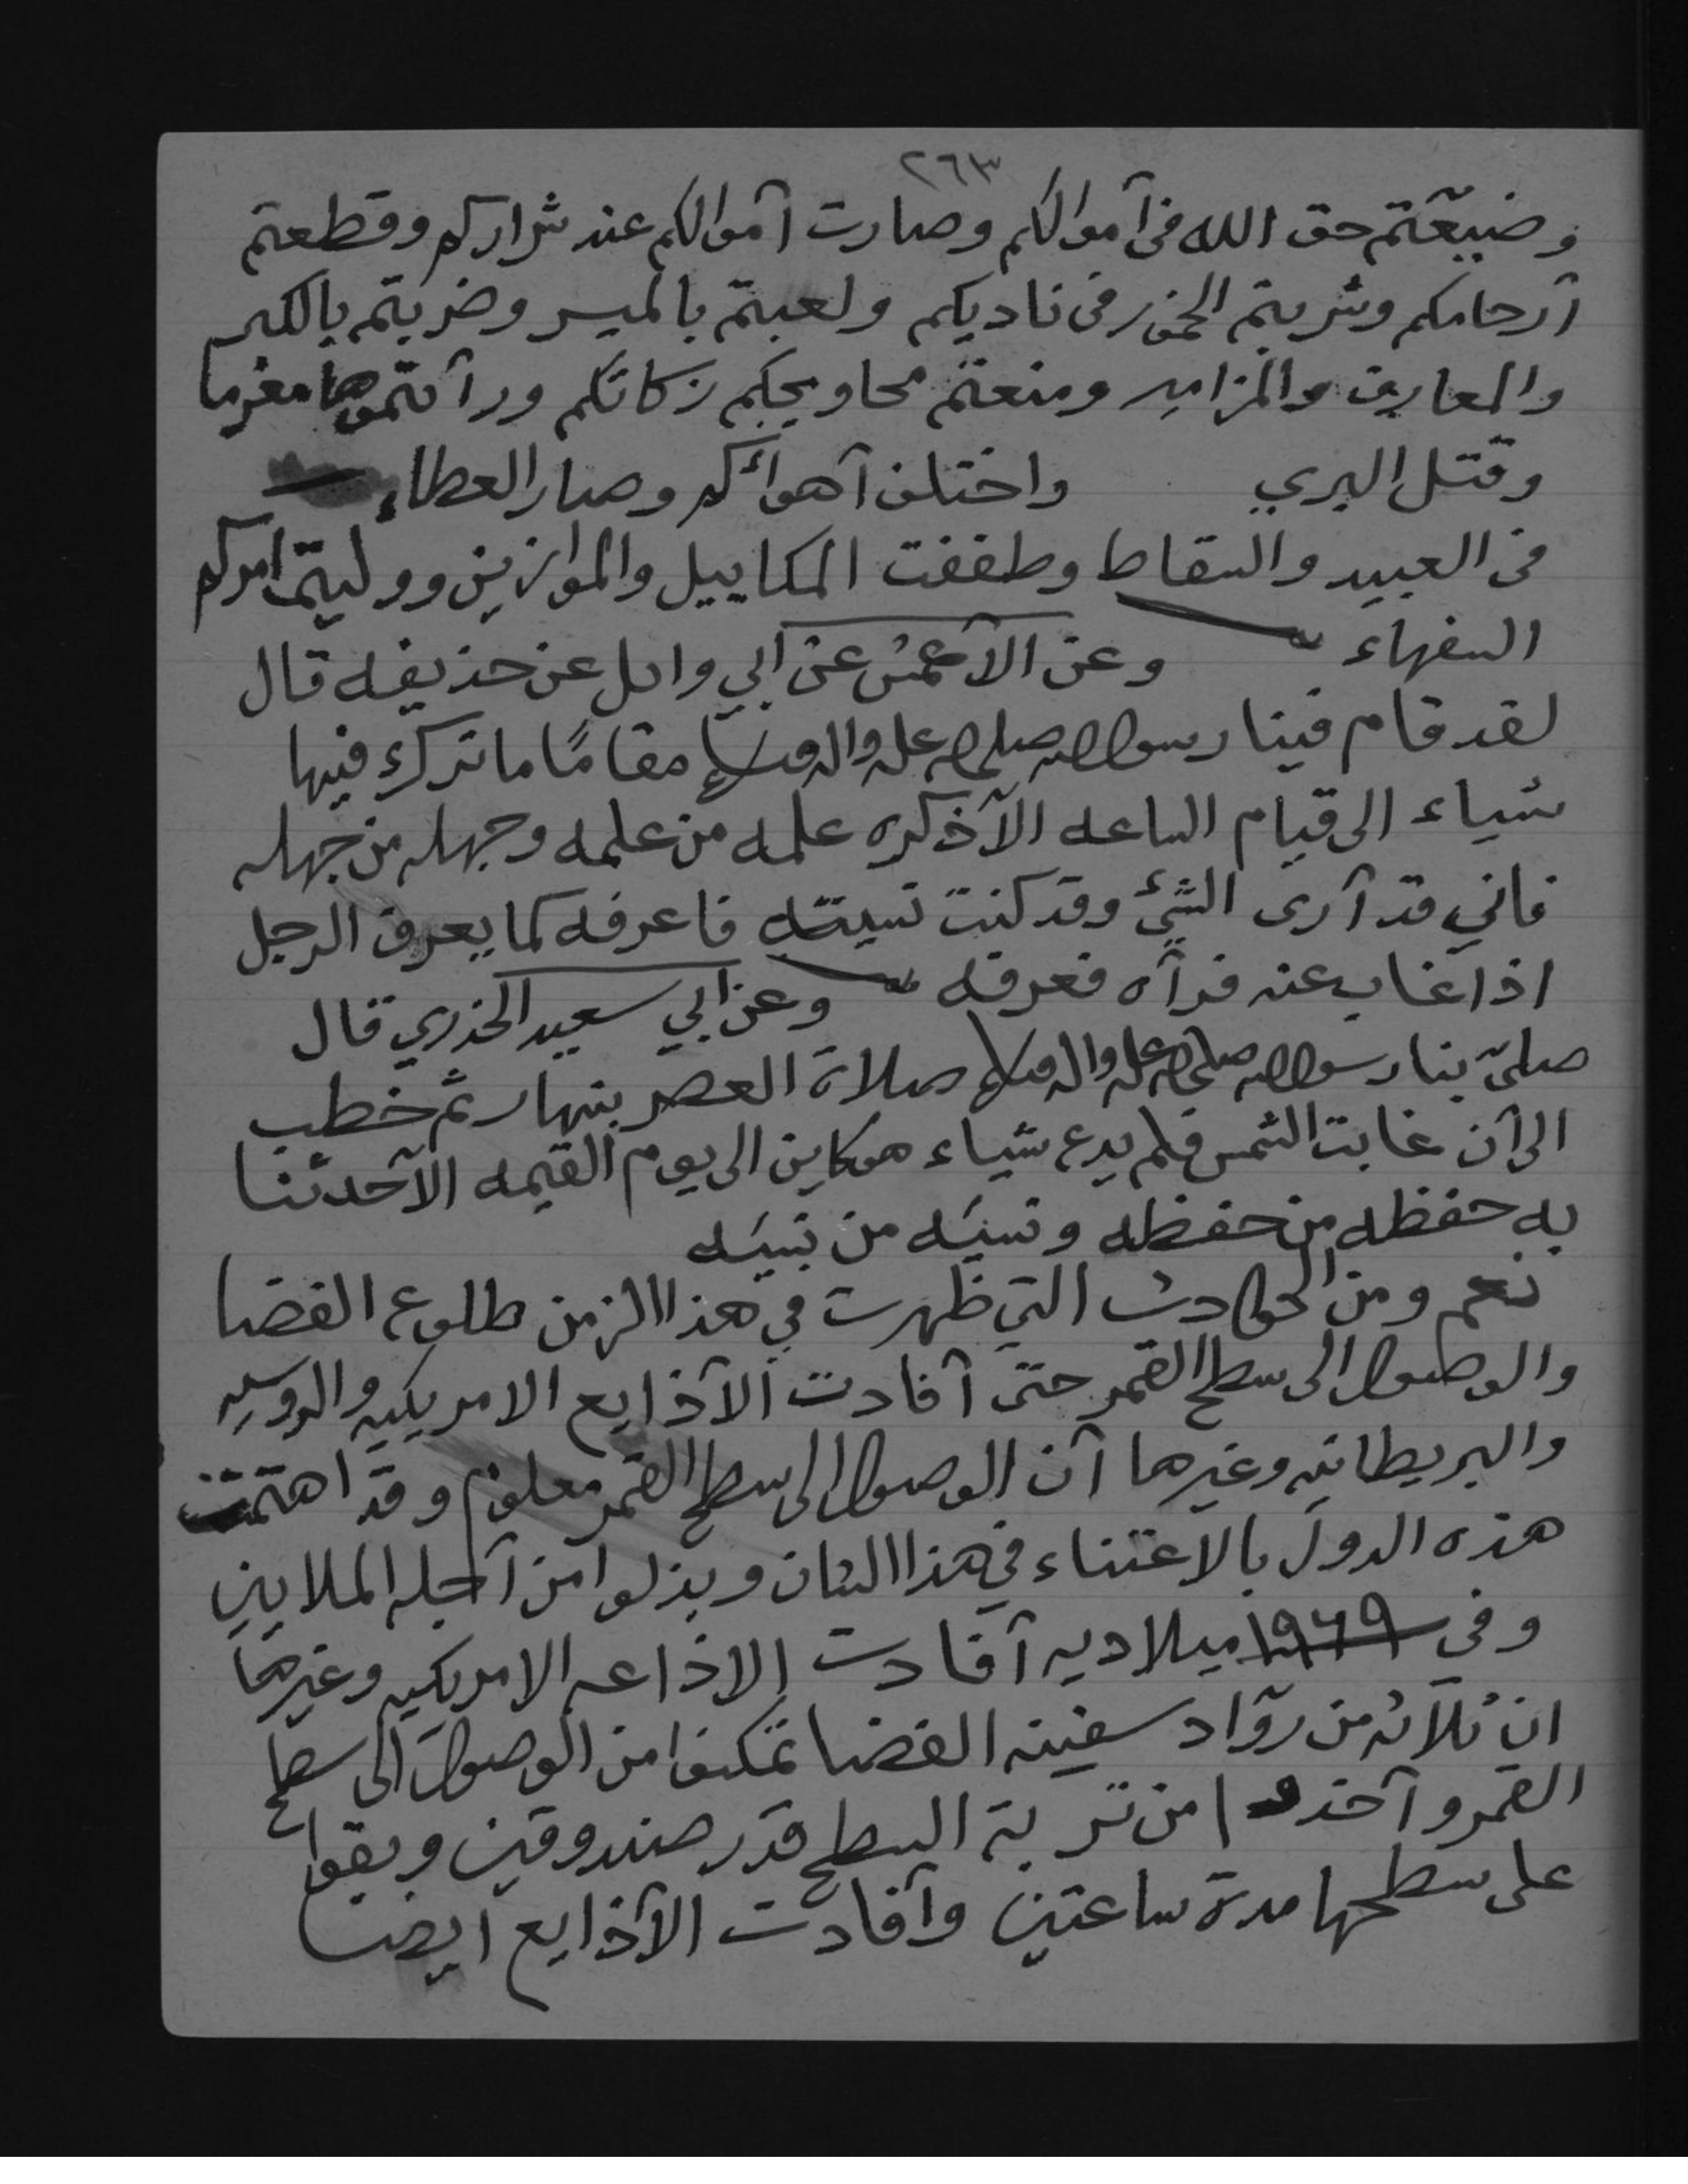 ٢٦٣
وضيعتم حق الله فى آموالكم وصارت آموالكم عند شراركم وقطعتم
آرحامكم وشربتم الخمور فى ناديكم ولعبتم بالميسر وضربتم بالكبر
والمعازف والمزامير ومنعتم محاويجكم زكاتكم ورآ تموها مغرما
وقتل البري واختلف آهوائكم وصار العطاء
فى العبيد والسقاط وطففت المكاييل والموازين ووليتم امركم
السفهاء وعن الآعمش عن ابي وائل عن حذيفه قال
لقد قام فينا رسول الله صلى الله عليه واله وسلم مقامًا ما ترك فيها
شياء الى قيام الساعه الآ ذكره علمه من علمه وجهله من جهله
فاني قد آرى الشيء وقد كنت نسيته فاعرفه كما يعرف الرجل
اذا غاب عنه فرآه فعرفه وعن ابي سعيد الخذري قال
صلىّ بنا رسول الله صلى الله عليه واله وسلم صلاة العصر بنهار ثم خطب
الى آن غابت الشمس فلم يدع شياء هو كاين الى يوم القيمه الآ حدثنا
به حفظه من حفظه ونسيَه من نسيَه
نعم ومن الحوادث التي ظهرت في هذا الزمن طلوع الفضا
والوصول الى سطح القمر حتى آفادت الآذايع الامريكيه والروسيه
والبريطانيه وغيرها آن الوصول الى سطح القمر معلوم وقد اهتمت
هذه الدول بالاعتناء في هذا الشان وبذلوا من آجله الملايين
وفى ١٩٦٩ ميلاديه آفادت الاذاعه الامريكيه وغيرها
ان ثلآثه من روّاد سفينه الفضا تمكنوا من الوصول الى سطح
القمر وآخذوا من تربة السطح قدر صندوقين وبقوا
على سطحها مدة ساعتين وآفادت الآذايع ايضا